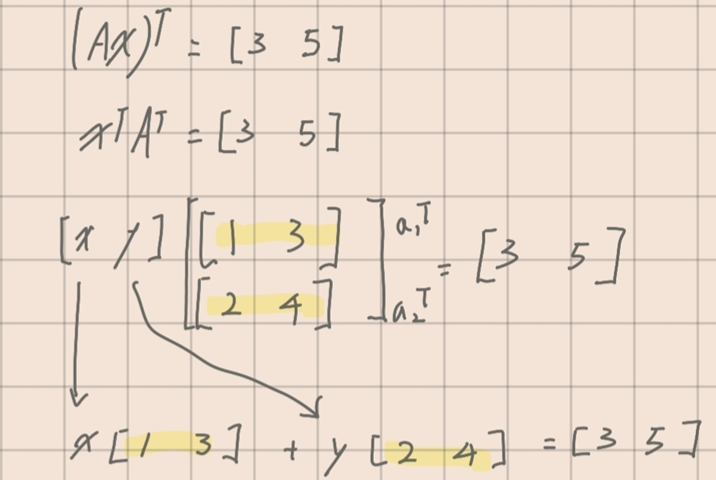 (Ax)ᵀ = [3 5]
xᵀAᵀ = [3 5]
[x y] [[1 3] [2 4]] a₁ᵀ a₂ᵀ = [3 5]
x [1 3] + y [2 4] = [3 5]